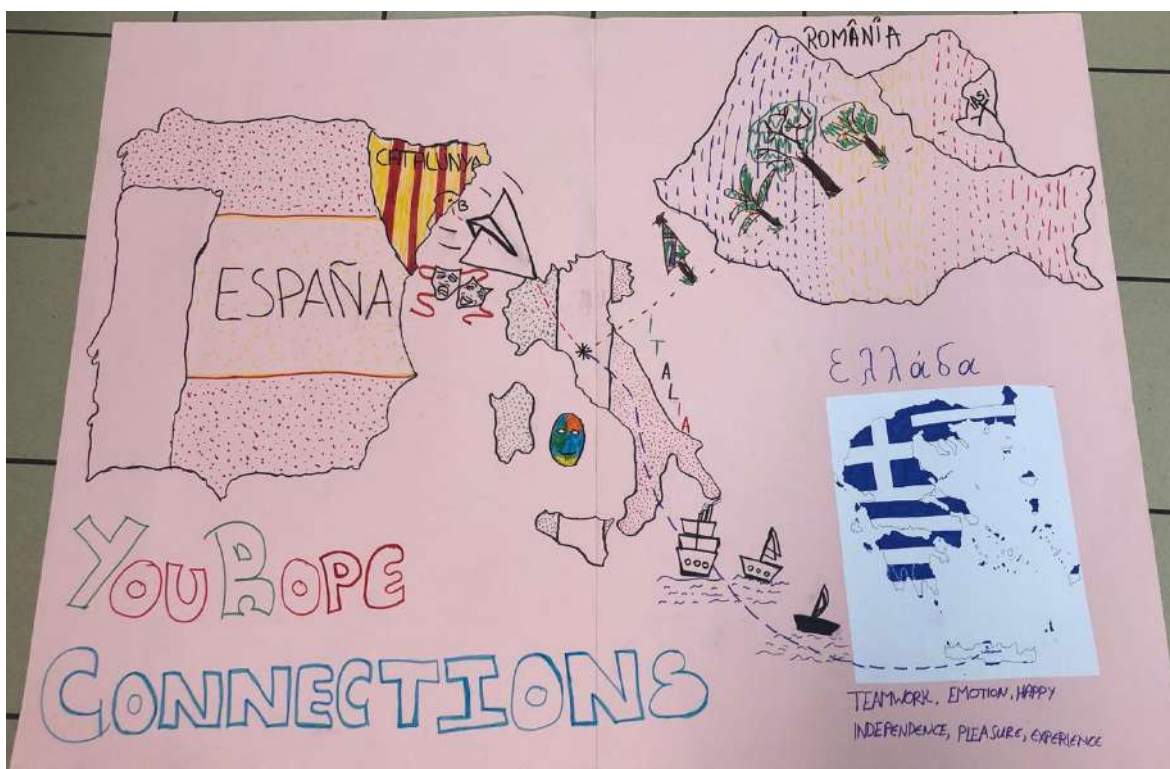 ROMÂNIA
IASI
CATALUNYA
B
ESPAÑA
ITALIA
ελλάδα
YOUROPE
CONNECTIONS
TEAMWORK, EMOTION, HAPPY
INDEPENDENCE, PLEASURE, EXPERIENCE